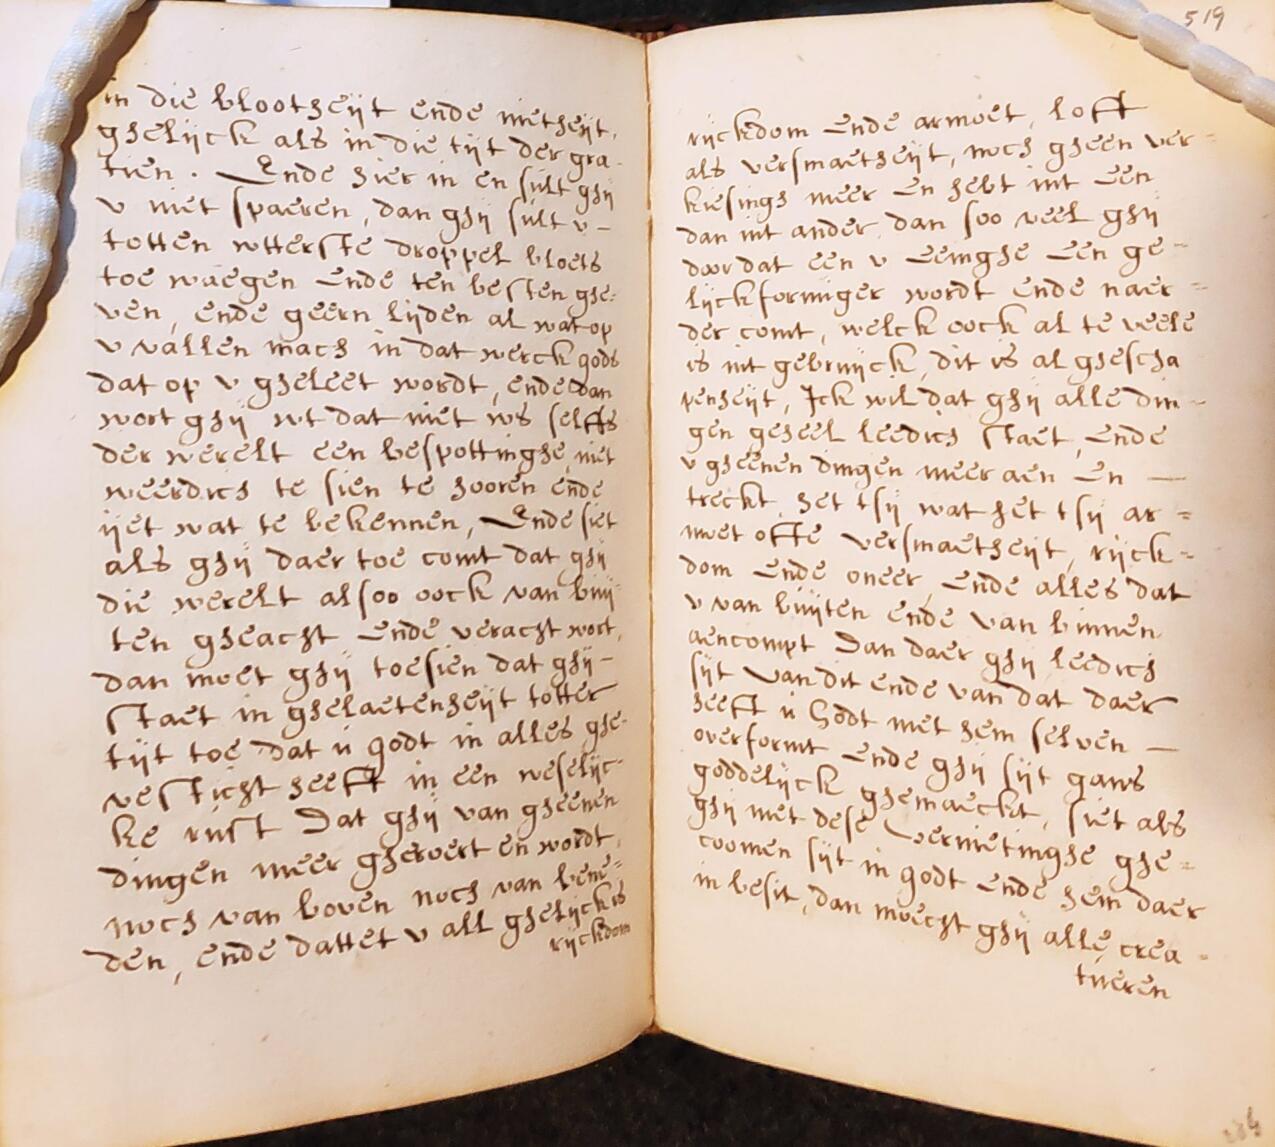 in die blootheijt ende nietheijt,
ghelijck als in die tijt der gra-
tien. Ende hier in en sult ghij
v niet spaeren, dan ghij sult v -
totten wtterste droppel bloets
toe waegen ende ten besten ghe-
ven, ende geern lijden al wat op
v vallen mach in dat werck gods
dat op v gheleet wordt, ende dan
wort ghij wt dat niet ws selffs
der werelt een bespottinghe, niet
weerdich te sien te hooren ende
ijet wat te bekennen, Ende siet
als ghij daer toe comt dat ghij
die werelt alsoo oock van buij-
ten gheacht ende veracht wort,
dan moet ghij toesien dat ghij -
staet in ghelaetenheijt totter
tijt toe dat u godt in alles ghe-
vesticht heefft in een weselijc-
ke rust Dat ghij van gheenen
dingen meer gheroert en wordt,
noch van boven noch van bene-
den, ende dattet v all ghelijck is
rijckdom
519
rijckdom ende armoet, lofft
als versmaetheijt, noch gheen ver-
kiesings meer en hebt int een
dan int ander dan soo veel ghij
door dat een v eenighe een ge-
lijckformiger wordt ende naer-
der comt, welck oock al te veele
is int gebruijck, dit is al ghescha
penheijt, Ick wil dat ghij alle din-
gen geheel leedich staet, ende
v gheenen dingen meer aen en -
treckt, het tsij wat het tsij ar-
moet offte versmaetheijt, rijck-
dom ende oneer, ende alles dat
v van buijten ende van binnen
aencompt Dan daer ghij leedich
sijt van dit ende van dat daer
heefft u Godt met hem selven -
overformt ende ghij sijt gans
goddelijck ghemaeckt, siet als
ghij met dese vernietinghe ghe-
coomen sijt in godt ende hem daer
in besit, dan moecht ghij alle crea-
tueren